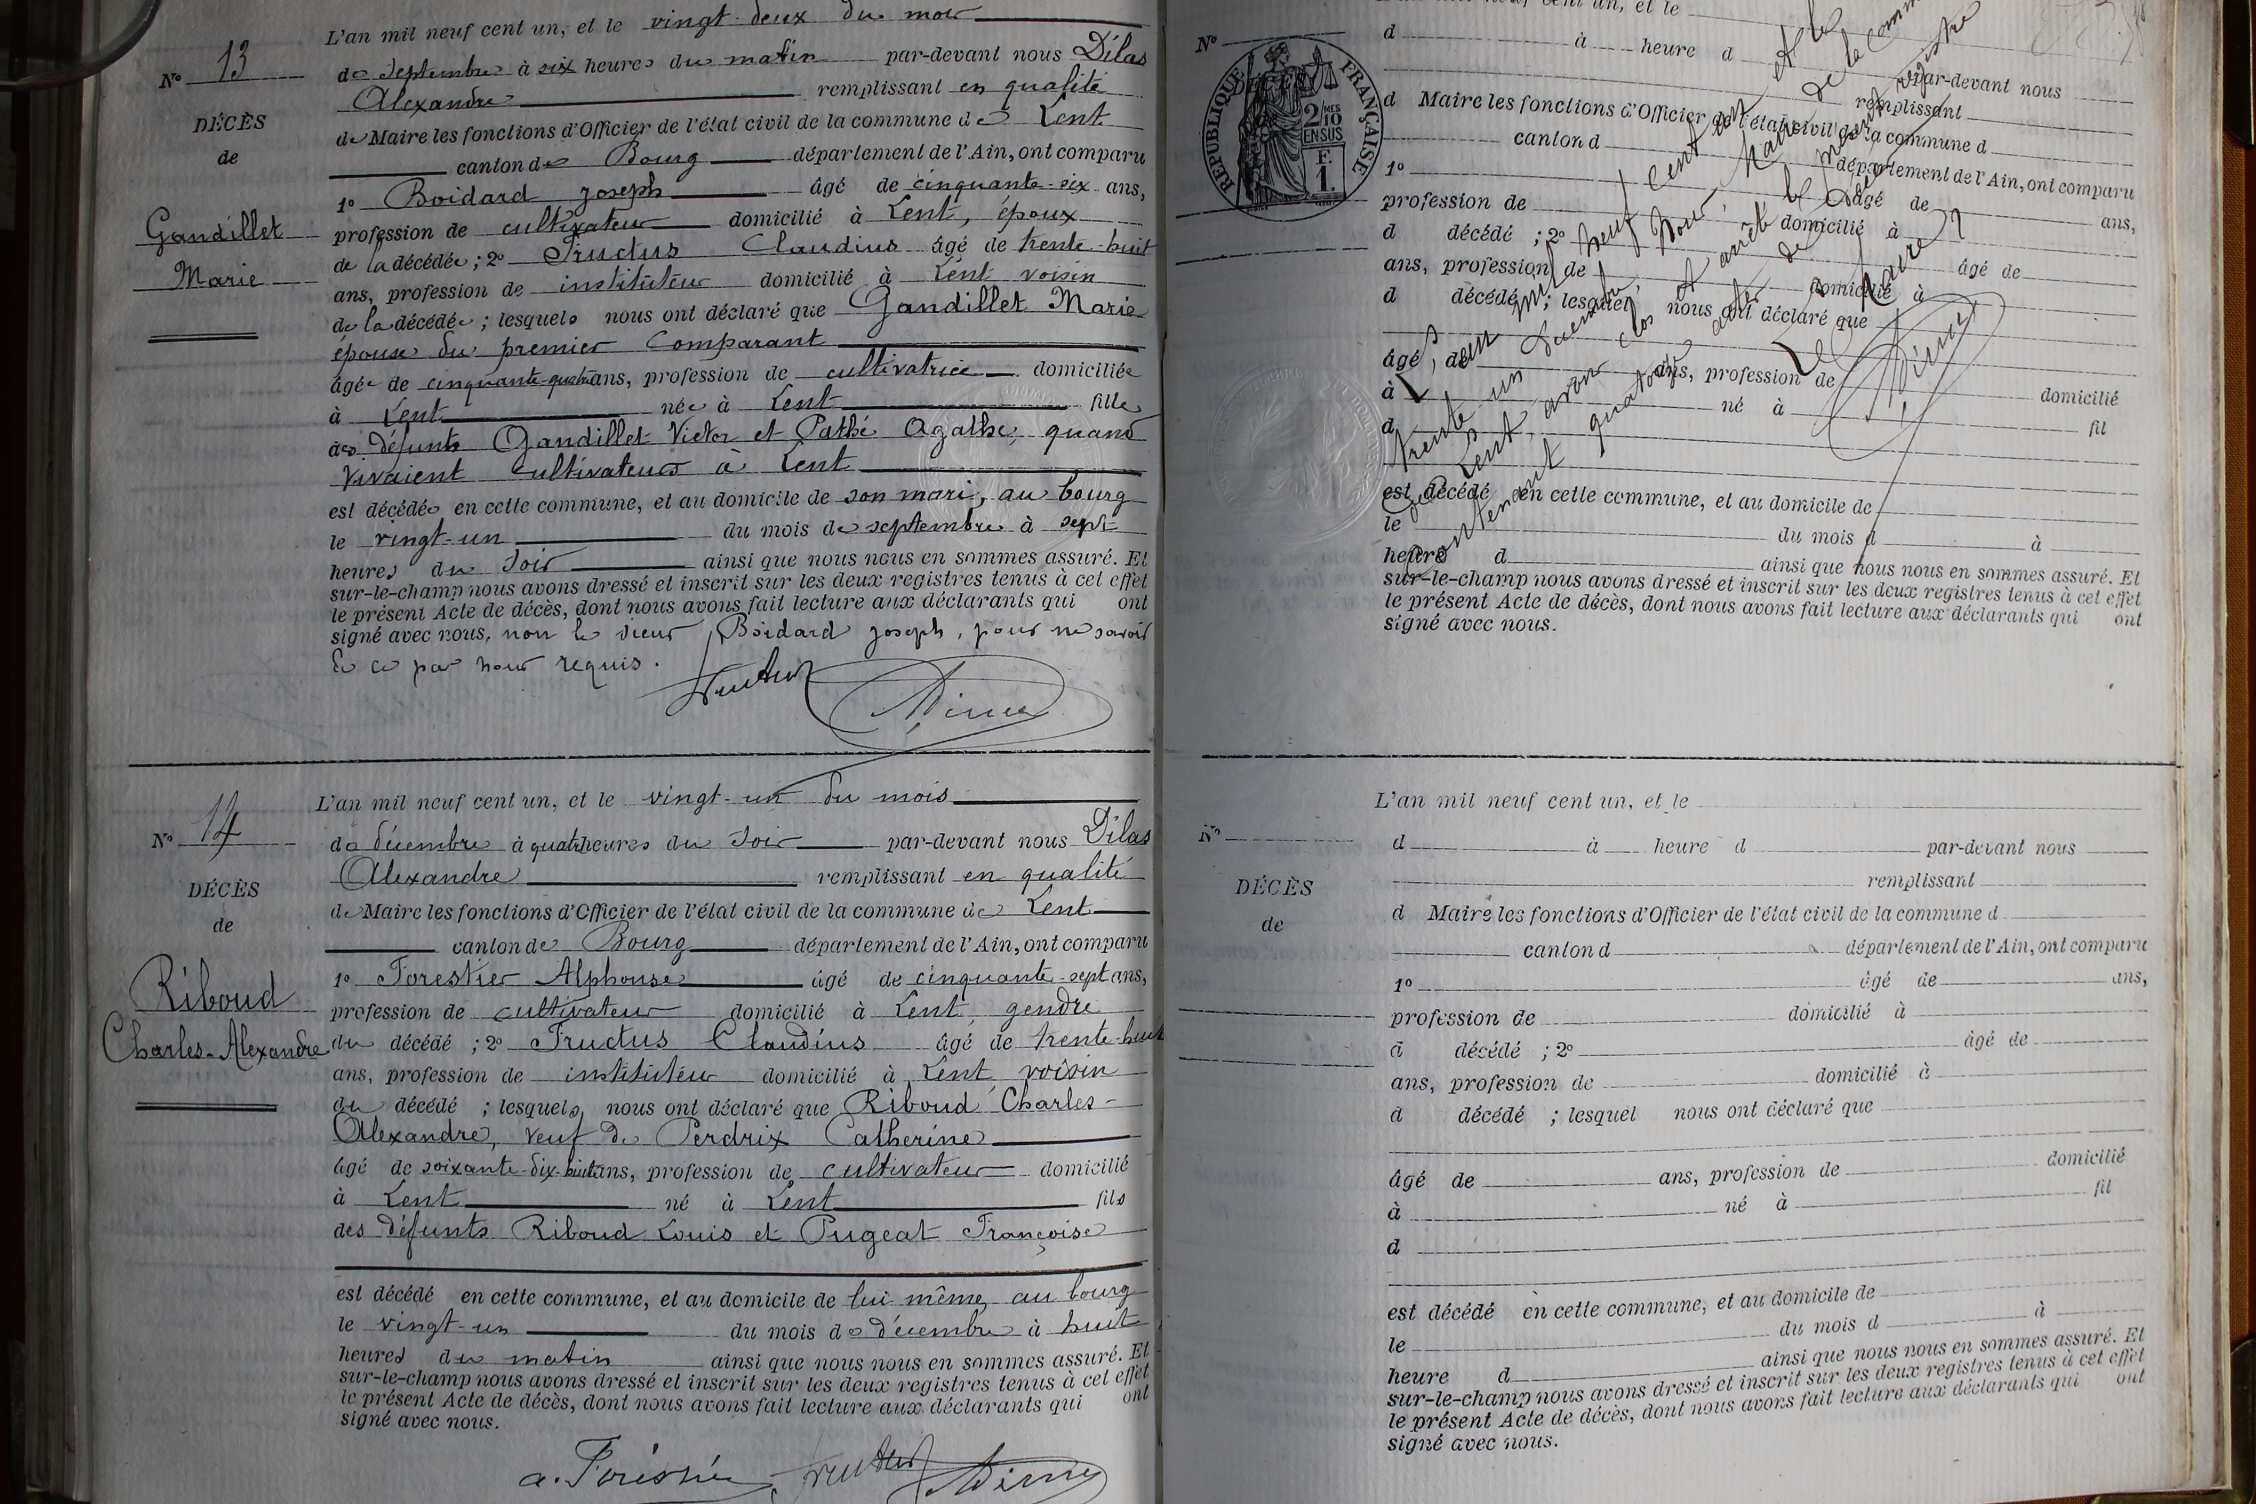 L'an mil neuf cent un, et le vingt-deux du mois
N° 13
de septembre à six heures du matin par-devant nous Dilas
Alexandre remplissant en qualité
DÉCÈS
de Maire les fonctions d'Officier de l'état civil de la commune de Lent
de
canton de Bourg département de l'Ain, ont comparu
1° Boidard Joseph âgé de cinquante-six ans,
Gandillet
profession de cultivateur domicilié à Lent, époux
Marie
de la décédée ; 2° Fructus Claudius âgé de trente-huit
ans, profession de instituteur domicilié à Lent voisin
de la décédée ; lesquels nous ont déclaré que Gandillet Marie
épouse du premier Comparant
âgée de cinquante-quatre ans, profession de cultivatrice domiciliée
à Lent née à Lent fille
des défunts Gandillet Victor et Pathé Agathe, quand
vivaient cultivateurs à Lent
est décédée en cette commune, et au domicile de son mari, au bourg
le vingt-un du mois de septembre à sept
heures du soir ainsi que nous nous en sommes assuré. Et
sur-le-champ nous avons dressé et inscrit sur les deux registres tenus à cet effet
le présent Acte de décès, dont nous avons fait lecture aux déclarants qui ont
signé avec nous, non le sieur Boidard Joseph, pour ne savoir
de ce par nous requis.
Fructus
N° 14
L'an mil neuf cent un, et le vingt-un du mois
de décembre à quatre heures du soir par-devant nous Dilas
Alexandre remplissant en qualité
DÉCÈS
de Maire les fonctions d'Officier de l'état civil de la commune de Lent
de
canton de Bourg département de l'Ain, ont comparu
1° Forestier Alphonse âgé de cinquante-sept ans,
Riboud
profession de cultivateur domicilié à Lent, gendre
Charles-Alexandre
du décédé ; 2° Fructus Claudius âgé de trente-huit
ans, profession de instituteur domicilié à Lent, voisin
du décédé ; lesquels nous ont déclaré que Riboud Charles-
Alexandre, veuf de Perdrix Catherine
âgé de soixante-dix-huit ans, profession de cultivateur domicilié
à Lent né à Lent fils
des défunts Riboud Louis et Pugeat Françoise
est décédé en cette commune, et au domicile de lui même, au bourg
le vingt-un du mois de décembre à huit
heures du matin ainsi que nous nous en sommes assuré. Et
sur-le-champ nous avons dressé et inscrit sur les deux registres tenus à cet effet
le présent Acte de décès, dont nous avons fait lecture aux déclarants qui ont
signé avec nous.
a. Forestier Fructus
L'an mil neuf cent un, et le
N°
d à heure d par-devant nous
remplissant
d Maire les fonctions d'Officier de l'état civil de la commune d
canton d département de l'Ain, ont comparu
1° âgé de ans,
profession de domicilié à
d décédé ; 2° âgé de
ans, profession de domicilié à
d décédé ; lesquel nous ont déclaré que
âgé de ans, profession de domicilié
à né à fil
d
est décédé en cette commune, et au domicile de
le du mois d à
heure d ainsi que nous nous en sommes assuré. Et
sur-le-champ nous avons dressé et inscrit sur les deux registres tenus à cet effet
le présent Acte de décès, dont nous avons fait lecture aux déclarants qui ont
signé avec nous.
RÉPUBLIQUE FRANÇAISE
2 MES
10
EN SUS
F.
1.
L'an mil neuf cent un et le
trente un Décembre, Nous, Maire de la comm
de Lent, avons clos et arrêté le présent registre
contenant quatorze actes de décès
Le Maire
L'an mil neuf cent un, et le
N°
d à heure d par-devant nous
remplissant
DÉCÈS
d Maire les fonctions d'Officier de l'état civil de la commune d
de
canton d département de l'Ain, ont comparu
1° âgé de ans,
profession de domicilié à
d décédé ; 2° âgé de
ans, profession de domicilié à
d décédé ; lesquel nous ont déclaré que
âgé de ans, profession de domicilié
à né à fil
d
est décédé en cette commune, et au domicile de
le du mois d à
heure d ainsi que nous nous en sommes assuré. Et
sur-le-champ nous avons dressé et inscrit sur les deux registres tenus à cet effet
le présent Acte de décès, dont nous avons fait lecture aux déclarants qui ont
signé avec nous.